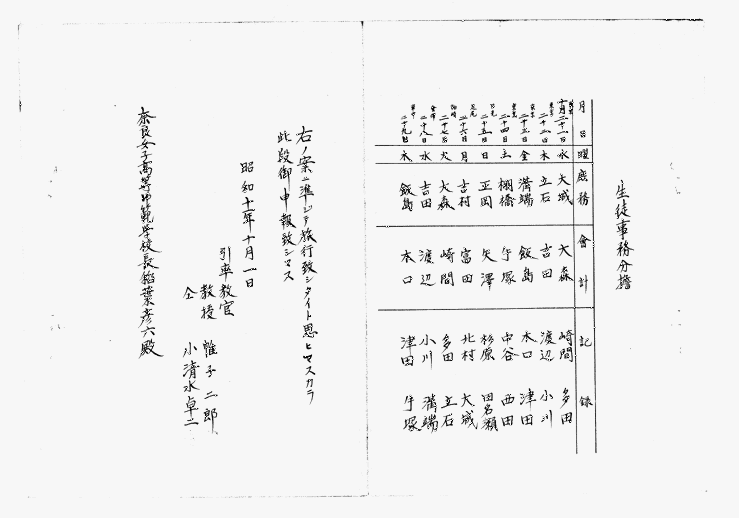 生徒事務分擔
月日 曜 庶務 會計 記録
十月二十一日 水 大城 大森 崎間 多田
二十二日 木 立石 吉田 渡辺 小川
二十三日 金 溝端 飯島 木口 津田
二十四日 土 棚橋 手塚 中谷 西田
二十五日 日 正岡 矢澤 杉原 田名瀬
二十六日 月 吉村 富田 北村 大城
二十七日 火 大森 崎間 多田 立石
二十八日 水 吉田 渡辺 小川 溝端
二十九日 木 飯島 木口 津田 手塚
右ノ案ニ準ジテ旅行致シタイト思ヒマスカラ
此段御申報致シマス
昭和十一年十月一日
引率教官
教授 雅子二郎
仝 小清水卓二
奈良女子高等師範学校長稲葉彦六殿